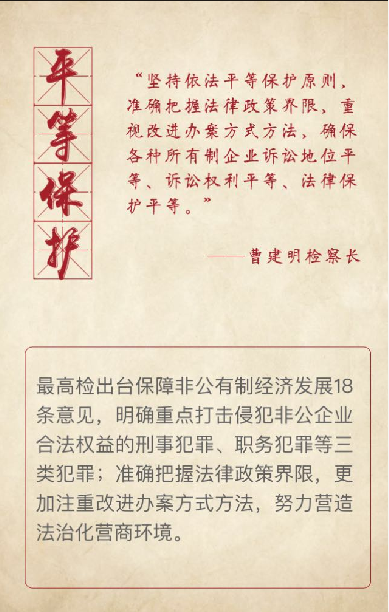 平等保护
“坚持依法平等保护原则，
准确把握法律政策界限，重
视改进办案方式方法，确保
各种所有制企业诉讼地位平
等、诉讼权利平等、法律保
护平等。”
——曹建明检察长
最高检出台保障非公有制经济发展18
条意见，明确重点打击侵犯非公企业
合法权益的刑事犯罪、职务犯罪等三
类犯罪；准确把握法律政策界限，更
加注重改进办案方式方法，努力营造
法治化营商环境。